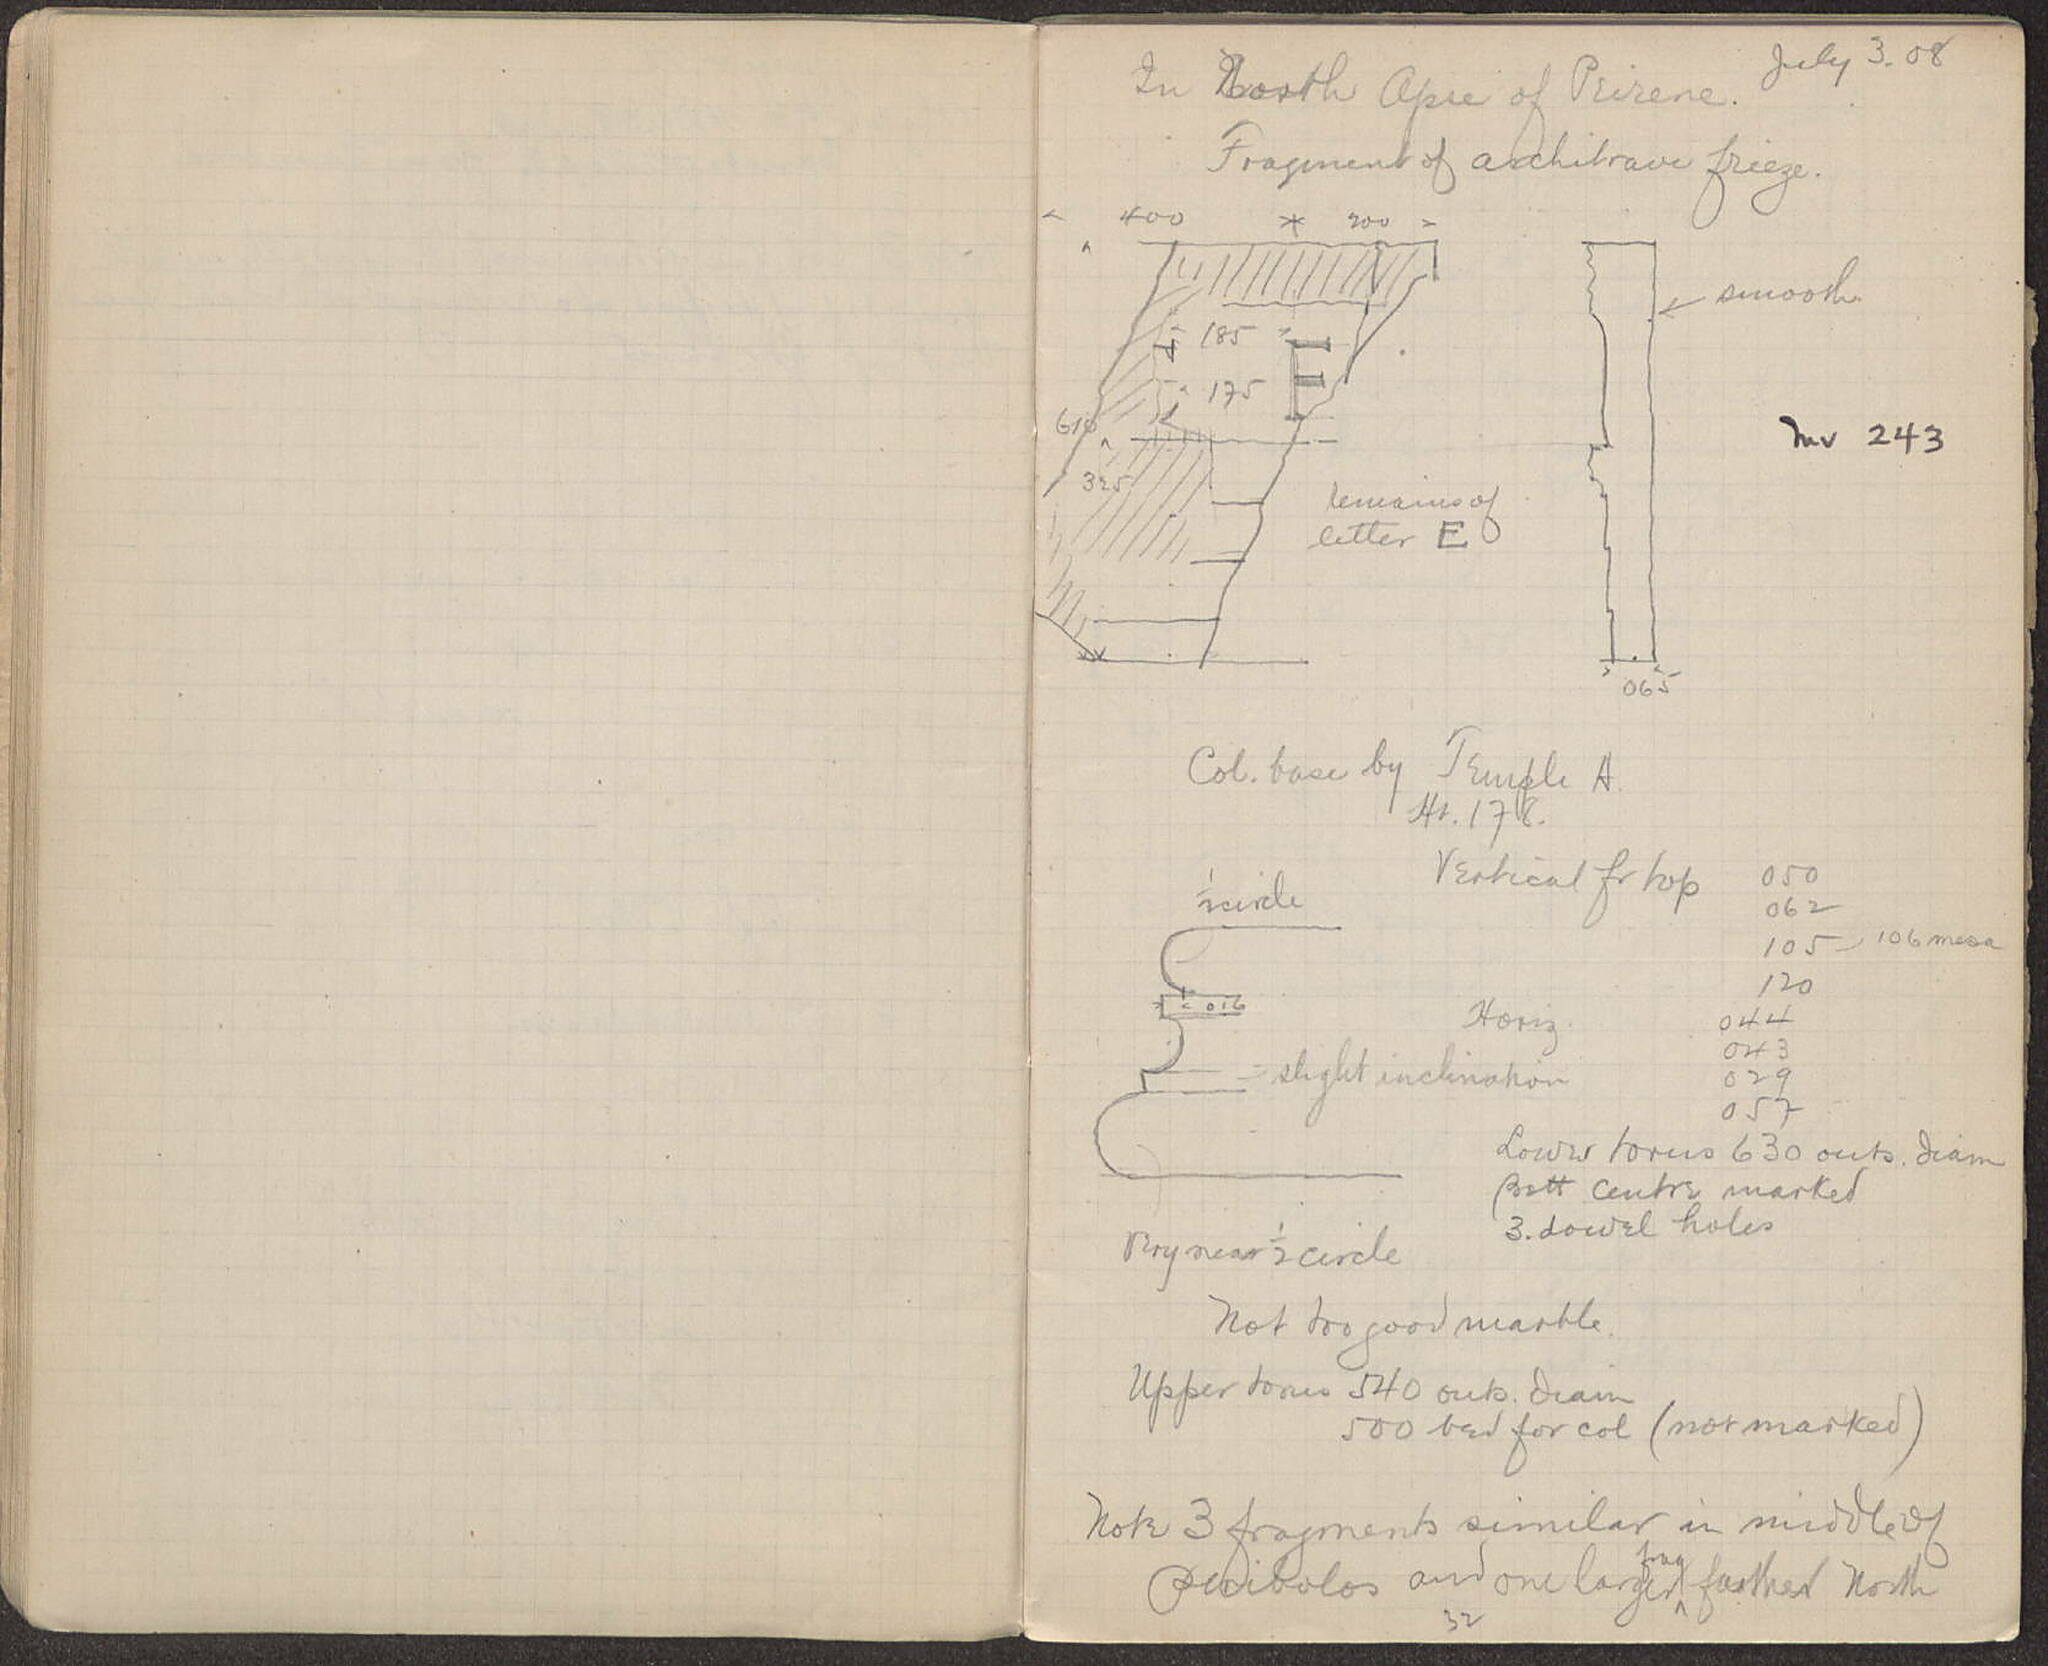 July 3. 08
In North Apse of Peirene.
Fragment of architrave frieze.
400 200
smooth
185
E
175
610
Inv 243
325
remains of
letter E
065
Col. base by Temple A.
Ht. 178.
Vertical fr top 050
062
105 106 meas
120
1/2 circle
016
Horiz. 044
043
029
057
slight inclination
Lower torus 630 outs. diam
Bott centre marked
3. dowel holes
Very near 1/2 circle
Not too good marble.
Upper torus 540 outs. diam
500 bed for col (not marked)
Note 3 fragments similar in middle of
peribolos and one larger frag farther North
32